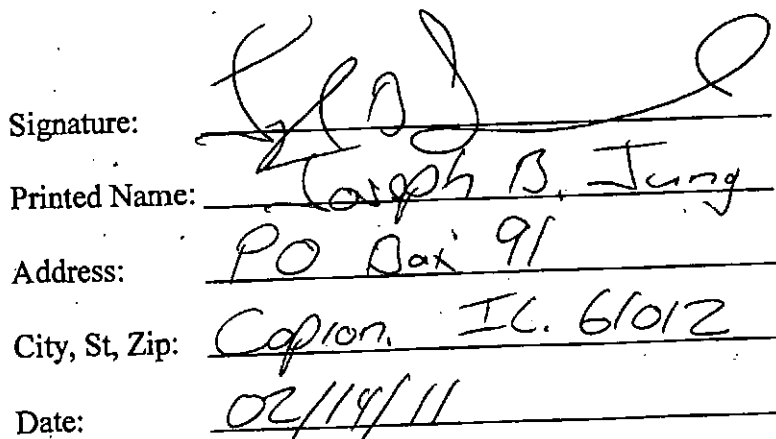 Signature:
Printed Name: Joseph B. Jung
Address: PO Box 91
City, St, Zip: Capron, IL. 61012
Date: 02/14/11